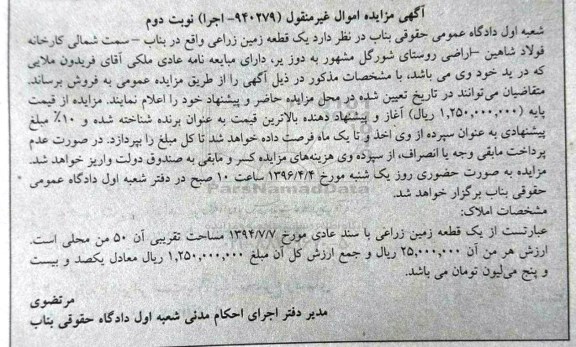 آگهی مزایده اموال غیرمنقول (۹۴۰۲۷۹- اجرا) نوبت دوم
شعبه اول دادگاه عمومی حقوقی بناب در نظر دارد یک قطعه زمین زراعی واقع در بناب –سمت شمالی کارخانه
فولاد شاهین –اراضی روستای شورگل مشهور به دوز یر، دارای مبایعه نامه عادی ملکی آقای فریدون ملایی
که در ید خود وی می باشد، با مشخصات مذکور در ذیل آگهی را از طریق مزایده عمومی به فروش برساند.
متقاضیان می‌توانند در تاریخ تعیین شده در محل مزایده حاضر و پیشنهاد خود را اعلام نمایند. مزایده از قیمت
پایه (۱,۲۵۰,۰۰۰,۰۰۰ ریال) آغاز و پیشنهاد دهنده بالاترین قیمت به عنوان برنده شناخته شده و ۱۰٪ مبلغ
پیشنهادی به عنوان سپرده از وی اخذ و تا یک ماه فرصت داده خواهد شد تا کل مبلغ را بپردازد. در صورت عدم
پرداخت مابقی وجه یا انصراف، از سپرده وی هزینه‌های مزایده کسر و مابقی به صندوق دولت واریز خواهد شد.
مزایده به صورت حضوری روز یک شنبه مورخ ۱۳۹۶/۴/۴ ساعت ۱۰ صبح در دفتر شعبه اول دادگاه عمومی
حقوقی بناب برگزار خواهد شد.
ParsNamadData
مشخصات املاک:
عبارتست از یک قطعه زمین زراعی با سند عادی مورخ ۱۳۹۴/۷/۷ مساحت تقریبی آن ۵۰ من محلی است.
ارزش هر من آن ۲۵,۰۰۰,۰۰۰ ریال و جمع ارزش کل آن مبلغ ۱,۲۵۰,۰۰۰,۰۰۰ ریال معادل یکصد و بیست
و پنج میلیون تومان می باشد.
مرتضوی
مدیر دفتر اجرای احکام مدنی شعبه اول دادگاه حقوقی بناب